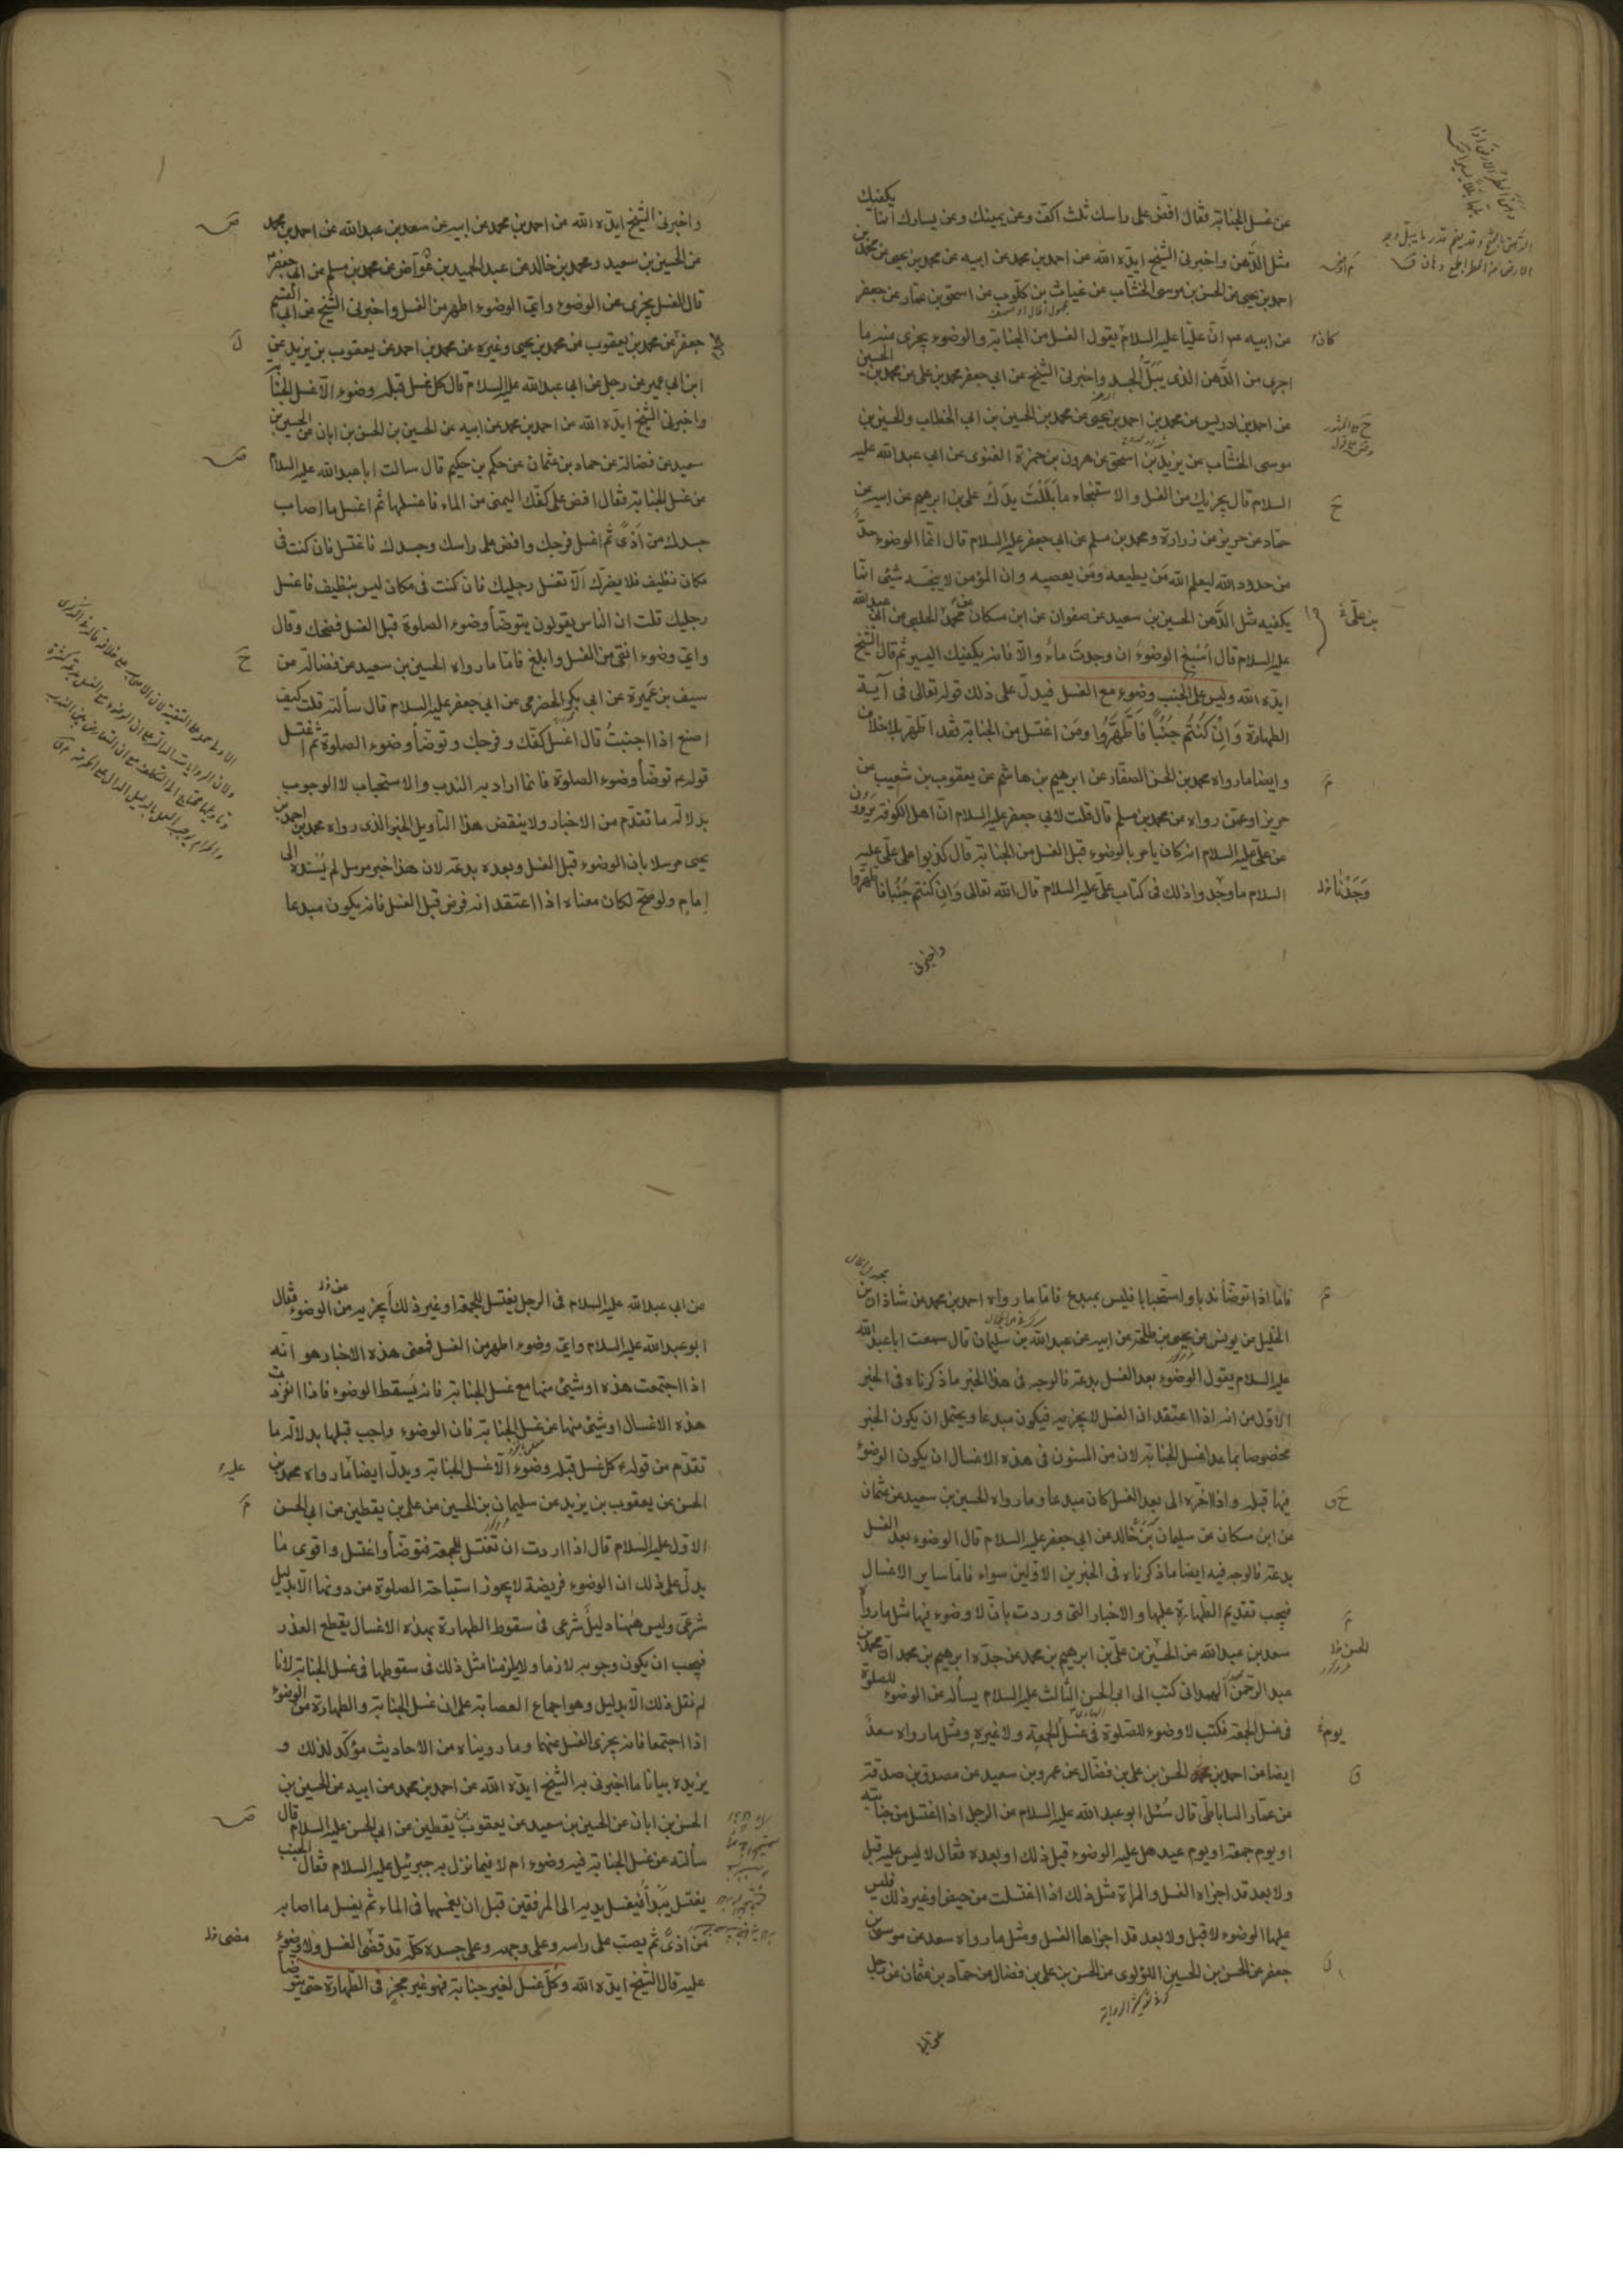 عن غسل الجنابة فقال افض على راسك ثلث اكف وعن يمينك وعن يسارك انما يكفيك
مثل الدهن واخبرنى الشيخ ايده الله عن احمد بن محمد عن ابيه عن محمد بن يحيى عن محمد بن
احمد بن يحيى عن الحسن بن موسى الخشاب عن غياث بن كلوب عن اسحق بن عمار عن جعفر
عن ابيه ان عليا عليه السلام يقول الغسل من الجنابة والوضوء يجزى منه ما
اجرى من الدهن الذى يبل الجسد واخبرنى الشيخ عن ابى جعفر محمد بن على عن محمد بن الحسين
عن احمد بن ادريس عن محمد بن احمد بن يحيى عن محمد بن الحسين بن ابى الخطاب والحسين بن
موسى الخشاب عن يزيد بن اسحق عن هرون بن حمزة الغنوى عن ابى عبد الله عليه
السلام قال يجزيك من الغسل والاستنجاء ما بَلَلتَ يدَكَ على بن ابرهيم عن ابيه عن
حماد عن حريز عن زرارة ومحمد بن مسلم عن ابى جعفر عليه السلام قال انما الوضوء حدّ
من حدود الله ليعلم الله مَن يطيعه ومَن يعصيه وان المؤمن لا ينجسه شئ انما
يكفيه مثل الدهن الحسين بن سعيد عن صفوان عن ابن مسكان عن محمد الحلبى عن ابى عبد الله
عليه السلام قال اَسْبِغ الوضوءَ ان وجدتَ ماءً والا فانه يكفيك اليسير ثم قال الشيخ
ايده الله وليس على الجنب وضوء مع الغسل فيدل على ذلك قوله تعالى فى آية
الطهارة وَاِن كُنتُم جُنُبًا فَاطَّهَّرُوا ومَن اغتسل من الجنابة فقد اطهر بلا خلاف
وايضا ما رواه محمد بن الحسن الصفار عن ابرهيم بن هاشم عن يعقوب بن شعيب عن
حريز او عمن رواه عن محمد بن مسلم قال قلت لابى جعفر عليه السلام ان اهل الكوفة يَروُون
عن على عليه السلام انه كان يامر بالوضوء قبل الغسل من الجنابة قال كذبوا على على عليه
السلام ما وجدوا ذلك فى كتاب على عليه السلام قال الله تعالى وَاِن كنتم جُنُبا فاطّهّروا
واخبرنى
كان
بن على
وَجَدْنا

واخبرنى الشيخ ايده الله عن احمد بن محمد عن ابيه عن سعد بن عبد الله عن احمد بن محمد
عن الحسين بن سعيد ومحمد بن خالد عن عبد الحميد بن عوّاض عن محمد بن مسلم عن ابى جعفر
قال الغسل يجزى عن الوضوء واىّ الوضوء اطهر من الغسل واخبرنى الشيخ عن ابى القسم
جعفر عن محمد بن يعقوب عن محمد بن يحيى وغيره عن محمد بن احمد عن يعقوب بن يزيد عن
ابن ابى عمير عن رجل عن ابى عبد الله عليه السلام قال كل غسل قبله وضوء الا غسل الجنابة
واخبرنى الشيخ ايده الله عن احمد بن محمد عن ابيه عن الحسين بن الحسن بن ابان عن الحسين بن
سعيد عن فضالة عن حماد بن عثمان عن حكم بن حكيم قال سالت ابا عبد الله عليه السلام
عن غسل الجنابة فقال افض على كفك اليمنى من الماء فاغسلها ثم اغسل ما اصاب
جسدك من اَذىً ثم اغسل فرجك وافض على راسك وجسدك فاغتسل فان كنت فى
مكان نظيف فلا يضرّك اَلّا تغسل رجليك فان كنت فى مكان ليس بنظيف فاغسل
رجليك قلت ان الناس يقولون يتوضأ وضوء الصلوة قبل الغسل فضحك وقال
واىّ وضوء انقى من الغسل وابلغ فاما ما رواه الحسين بن سعيد عن فضالة عن
سيف بن عَميرة عن ابى بكر الحضرمى عن ابى جعفر عليه السلام قال سألته قلت كيف
اصنع اذا اجنبتُ قال اغسل كفك وفرجك وتوضأ وضوء الصلوة ثم اغتسل
قوله توضأ وضوء الصلوة فانما اراد به الندب والاستحباب لا الوجوب
بدلالة ما تقدم من الاخبار ولا ينقض هذا التأويل الخبر الذى رواه محمد بن احمد بن
يحيى مرسلا بان الوضوء قبل الغسل وبعده بدعة لان هذا خبر مرسل لم يُسنده الى
اِمامٍ ولو صح لكان معناه اذا اعتقد انه فرض قبل الغسل فانه يكون مبدعا

فاما اذا توضأ ندبا واستحبابا فليس بمبدع فاما ما رواه احمد بن محمد عن شاذان بن
الخليل عن يونس عن يحيى بن طلحة عن ابيه عن عبد الله بن سليمان قال سمعت ابا عبد الله
عليه السلام يقول الوضوء بعد الغسل بدعة فالوجه فى هذا الخبر ما ذكرناه فى الخبر
الاول من انه اذا اعتقد ان الغسل لا يجزيه فيكون مبدعا ويحتمل ان يكون الخبر
مخصوصا بما عدا غسل الجنابة لان من المسنون فى هذه الاغسال ان يكون الوضوء
فيها قبله واذا اخّره الى بعد الغسل كان مبدعا وما رواه الحسين بن سعيد عن عثمان
عن ابن مسكان عن سليمان بن خالد عن ابى جعفر عليه السلام قال الوضوء بعد الغسل
بدعة فالوجه فيه ايضا ما ذكرناه فى الخبرين الاولين سواء فاما ساير الاغسال
فيجب تقديم الطهارة عليها والاخبار التى وردت بان لا وضوء فيها مثل ما رواه
سعد بن عبد الله عن الحسين بن على بن ابرهيم بن محمد عن جده ابرهيم بن محمد ان محمد بن
عبد الرحمن الهمدانى كتب الى ابى الحسن الثالث عليه السلام يسأله عن الوضوء للصلوة
فى غسل الجمعة فكتب لا وضوء للصلوة فى غسل الجمعة ولا غيره ومثل ما رواه سعد
ايضا عن احمد بن الحسن بن على بن فضال عن عمرو بن سعيد عن مصدق بن صدقة
عن عمار الساباطى قال سُئل ابو عبد الله عليه السلام عن الرجل اذا اغتسل من جنابته
او يوم جمعة او يوم عيد هل عليه الوضوء قبل ذلك او بعده فقال لا ليس عليه قبل
ولا بعد قد اجزاه الغسل والمراة مثل ذلك اذا اغتسلت من حيض او غير ذلك فليس
عليها الوضوء لا قبل ولا بعد قد اجزاها الغسل ومثل ما رواه سعد عن موسى بن
جعفر عن الحسن بن الحسين اللؤلوى عن الحسن بن على بن فضال عن حماد بن عثمان عن رجل
يوم

عن ابى عبد الله عليه السلام فى الرجل يغتسل للجمعة او غير ذلك أيجزيه من الوضوء فقال
ابو عبد الله عليه السلام واىّ وضوء اطهر من الغسل فمعنى هذه الاخبار هو انه
اذا اجتمعت هذه او شئ منها مع غسل الجنابة فانه يَسقط الوضوء فاذا انفردت
هذه الاغسال او شئ منها عن غسل الجنابة فان الوضوء واجب قبلها بدلالة ما
تقدم من قوله كل غسل قبله وضوء الا غسل الجنابة ويدل ايضا ما رواه محمد بن
الحسن عن يعقوب بن يزيد عن سليمان بن الحسين عن على بن يقطين عن ابى الحسن
الاول عليه السلام قال اذا اردت ان تغتسل للجمعة فتوضأ واغتسل واقوى ما
يدل على ذلك ان الوضوء فريضة لا يجوز استباحة الصلوة من دونها الا بدليل
شرعى وليس ههنا دليل شرعى فى سقوط الطهارة بهذه الاغسال يقطع العذر
فيجب ان يكون وجوبه لازما ولا يلزمنا مثل ذلك فى سقوطها فى غسل الجنابة لانا
لم نقل ذلك الا بدليل وهو اجماع العصابة على ان غسل الجنابة والطهارة من الوضوء
اذا اجتمعا فانه يجزى الغسل عنهما وما رويناه من الاحاديث مؤكد لذلك و
يزيده بيانا ما اخبرنى به الشيخ ايده الله عن احمد بن محمد عن ابيه عن الحسين بن
الحسن بن ابان عن الحسين بن سعيد عن يعقوب بن يقطين عن ابى الحسن عليه السلام قال
سألته عن غسل الجنابة فيه وضوء ام لا فيما نزل به جبرئيل عليه السلام فقال الجنب
يغتسل يَبدأ فيغسل يديه الى المرفقين قبل ان يغمسها فى الماء ثم يغسل ما اصابه
من اذىً ثم يصب على راسه وعلى وجهه وعلى جسده كله قد قضى الغسل ولا وضوء
عليه قال الشيخ ايده الله وكُلّ غسل لغير جنابة فهو غير مجزٍ فى الطهارة حتى يتوضأ
عليه